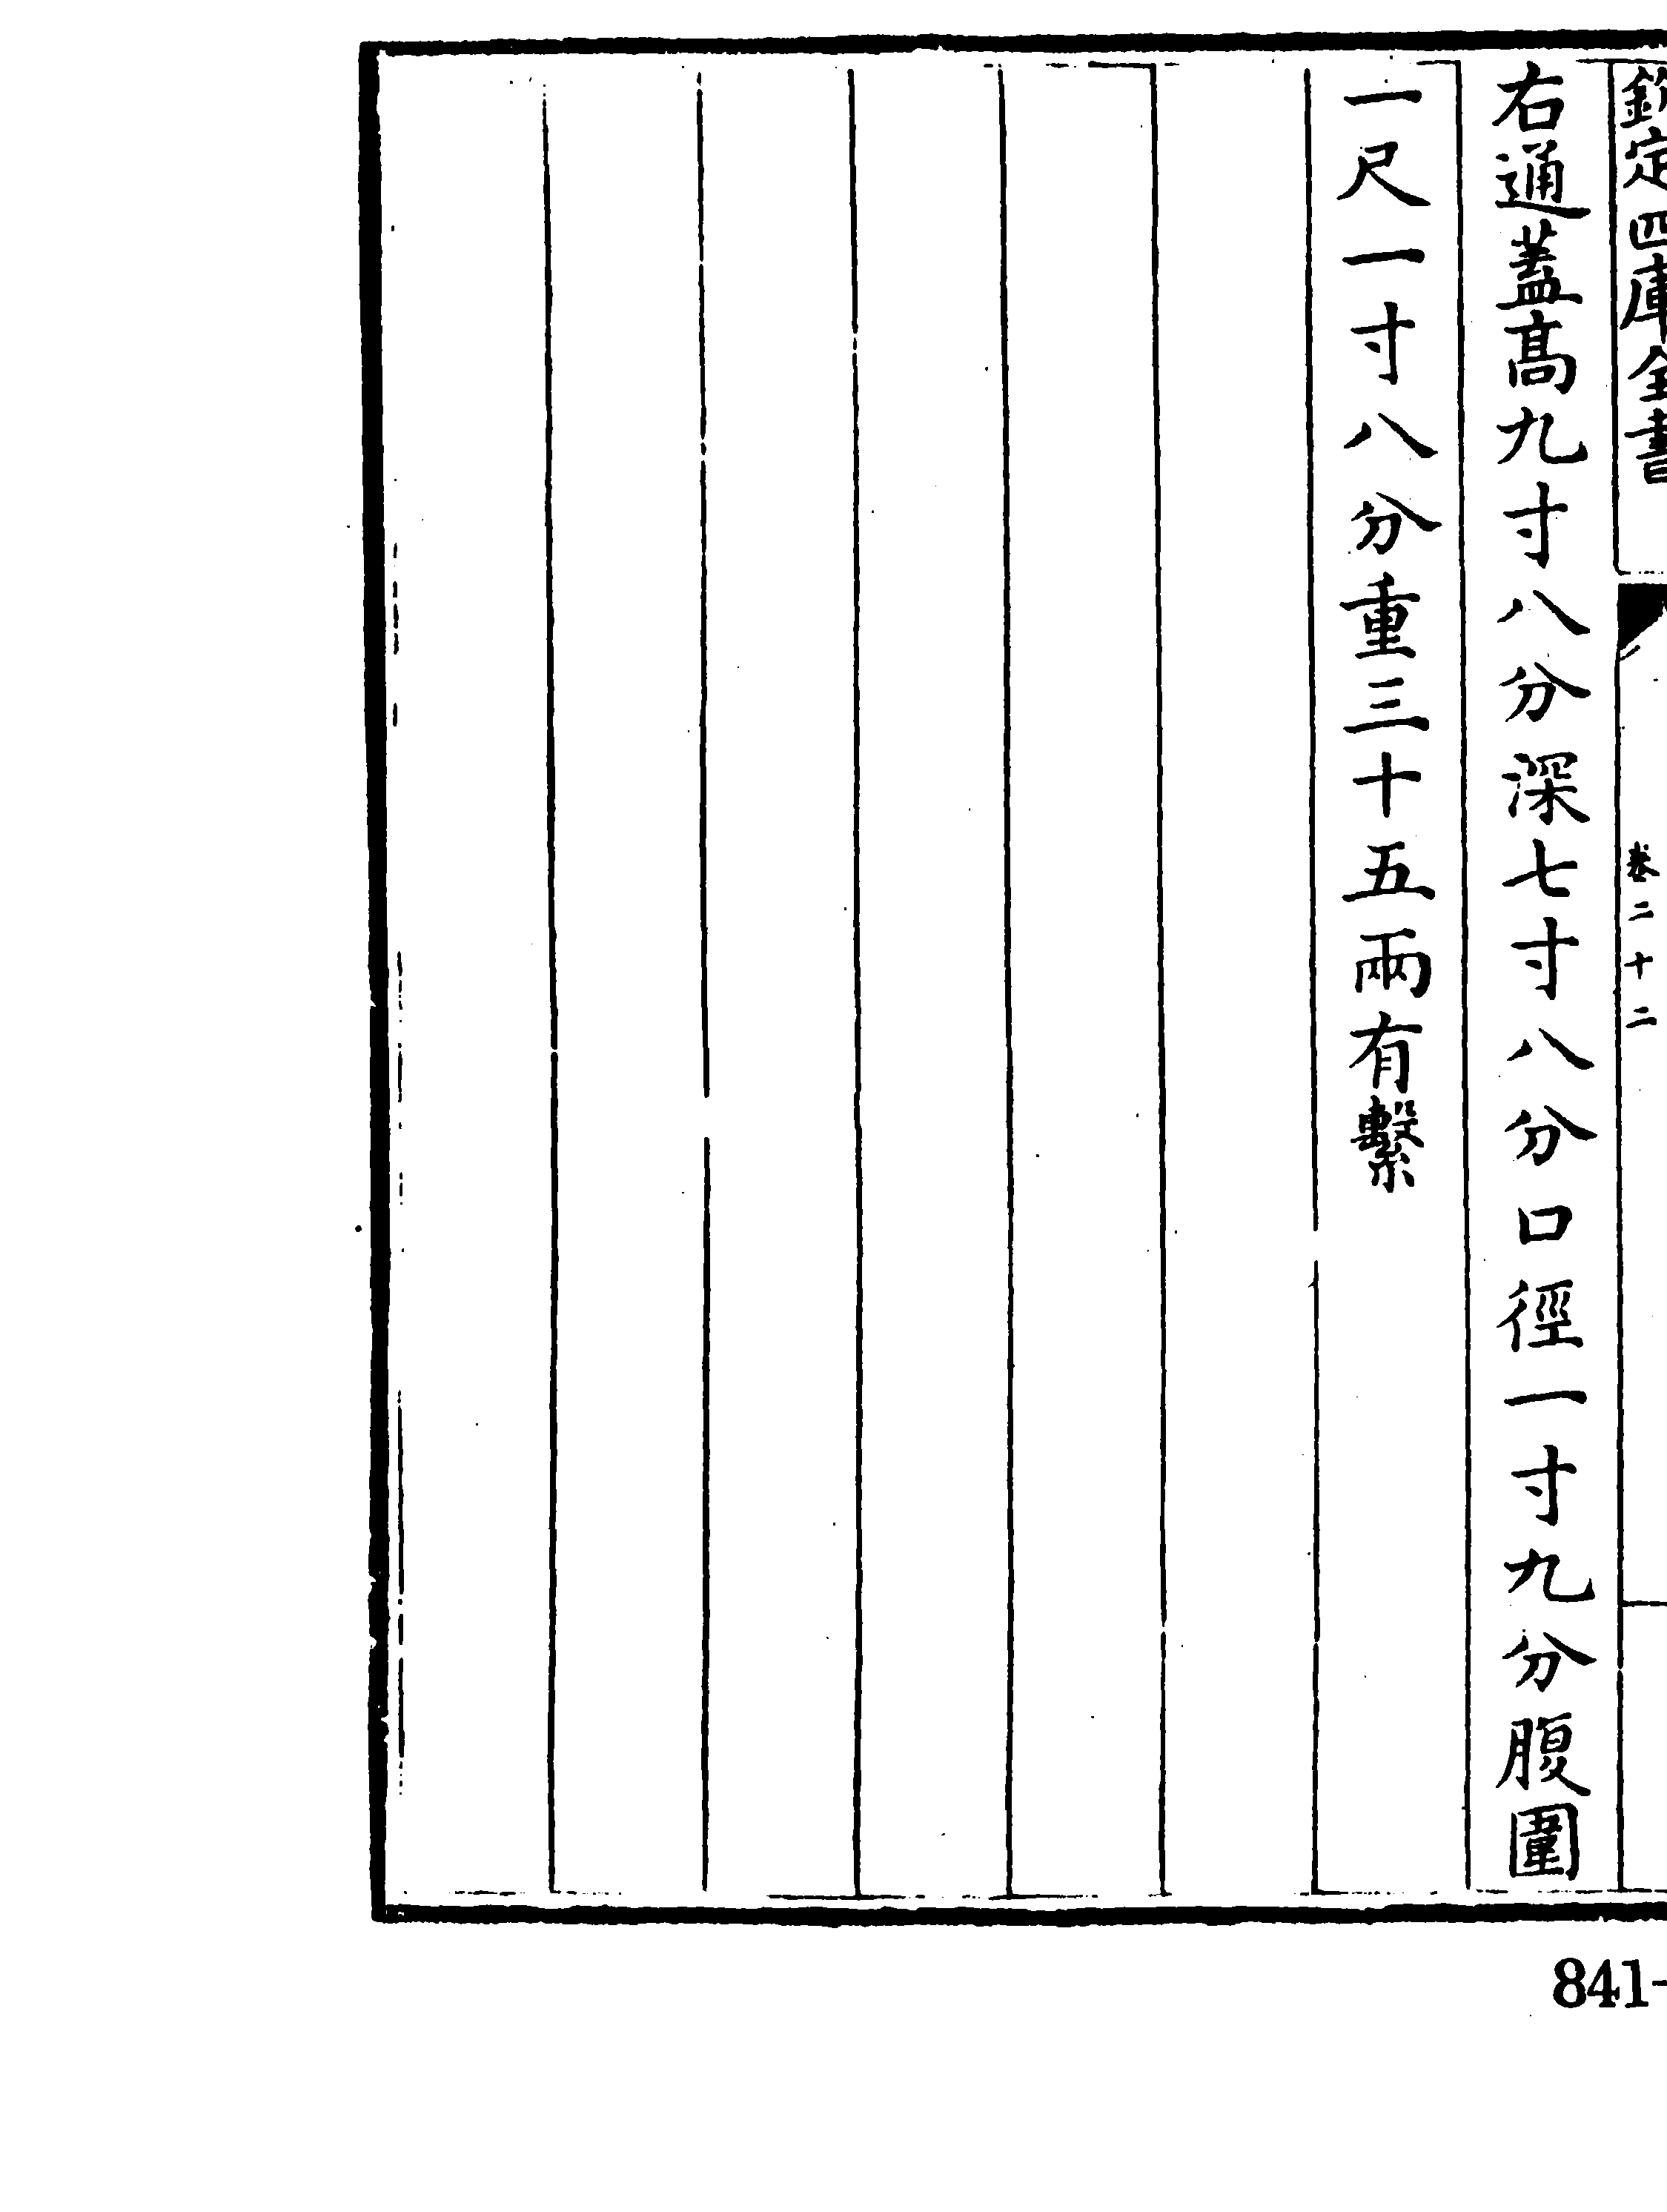 欽定四庫全書
卷二十二
右通蓋髙九寸八分深七寸八分口徑一寸九分腹圍
一尺一寸八分重三十五兩有繫
841-